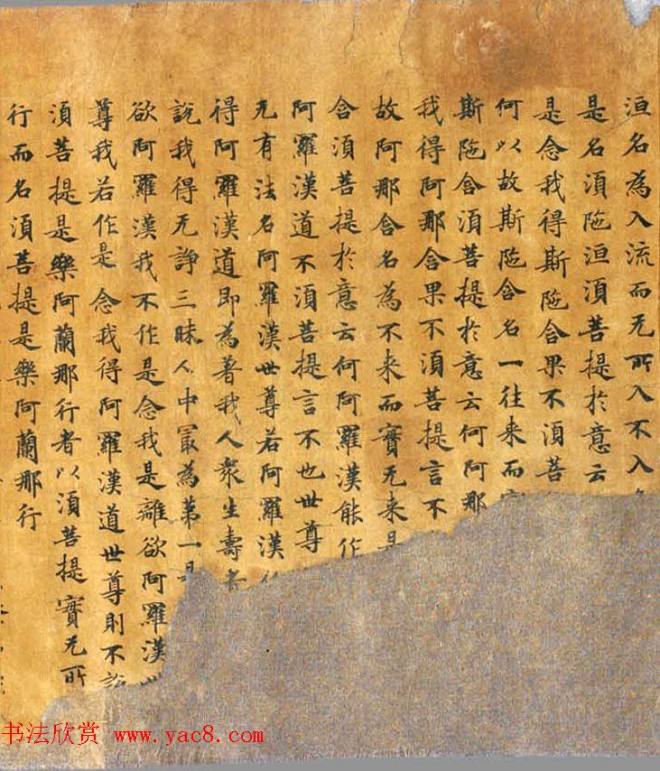 洹名為入流而无所入不入
是名須陁洹須菩提於意云
是念我得斯陁含果不須菩
何以故斯陁含名一往来而
斯陁含須菩提於意云何阿那
我得阿那含果不須菩提言不
故阿那含名為不来而實无来是
含須菩提於意云何阿羅漢能作
阿羅漢道不須菩提言不也世尊
无有法名阿羅漢世尊若阿羅漢作
得阿羅漢道即為著我人衆生壽者
說我得无諍三昧人中冣為第一是
欲阿羅漢我不作是念我是離欲阿羅漢世
尊我若作是念我得阿羅漢道世尊則不說
須菩提是樂阿蘭那行者以須菩提實无所
行而名須菩提是樂阿蘭那行
书法欣赏 www.yac8.com